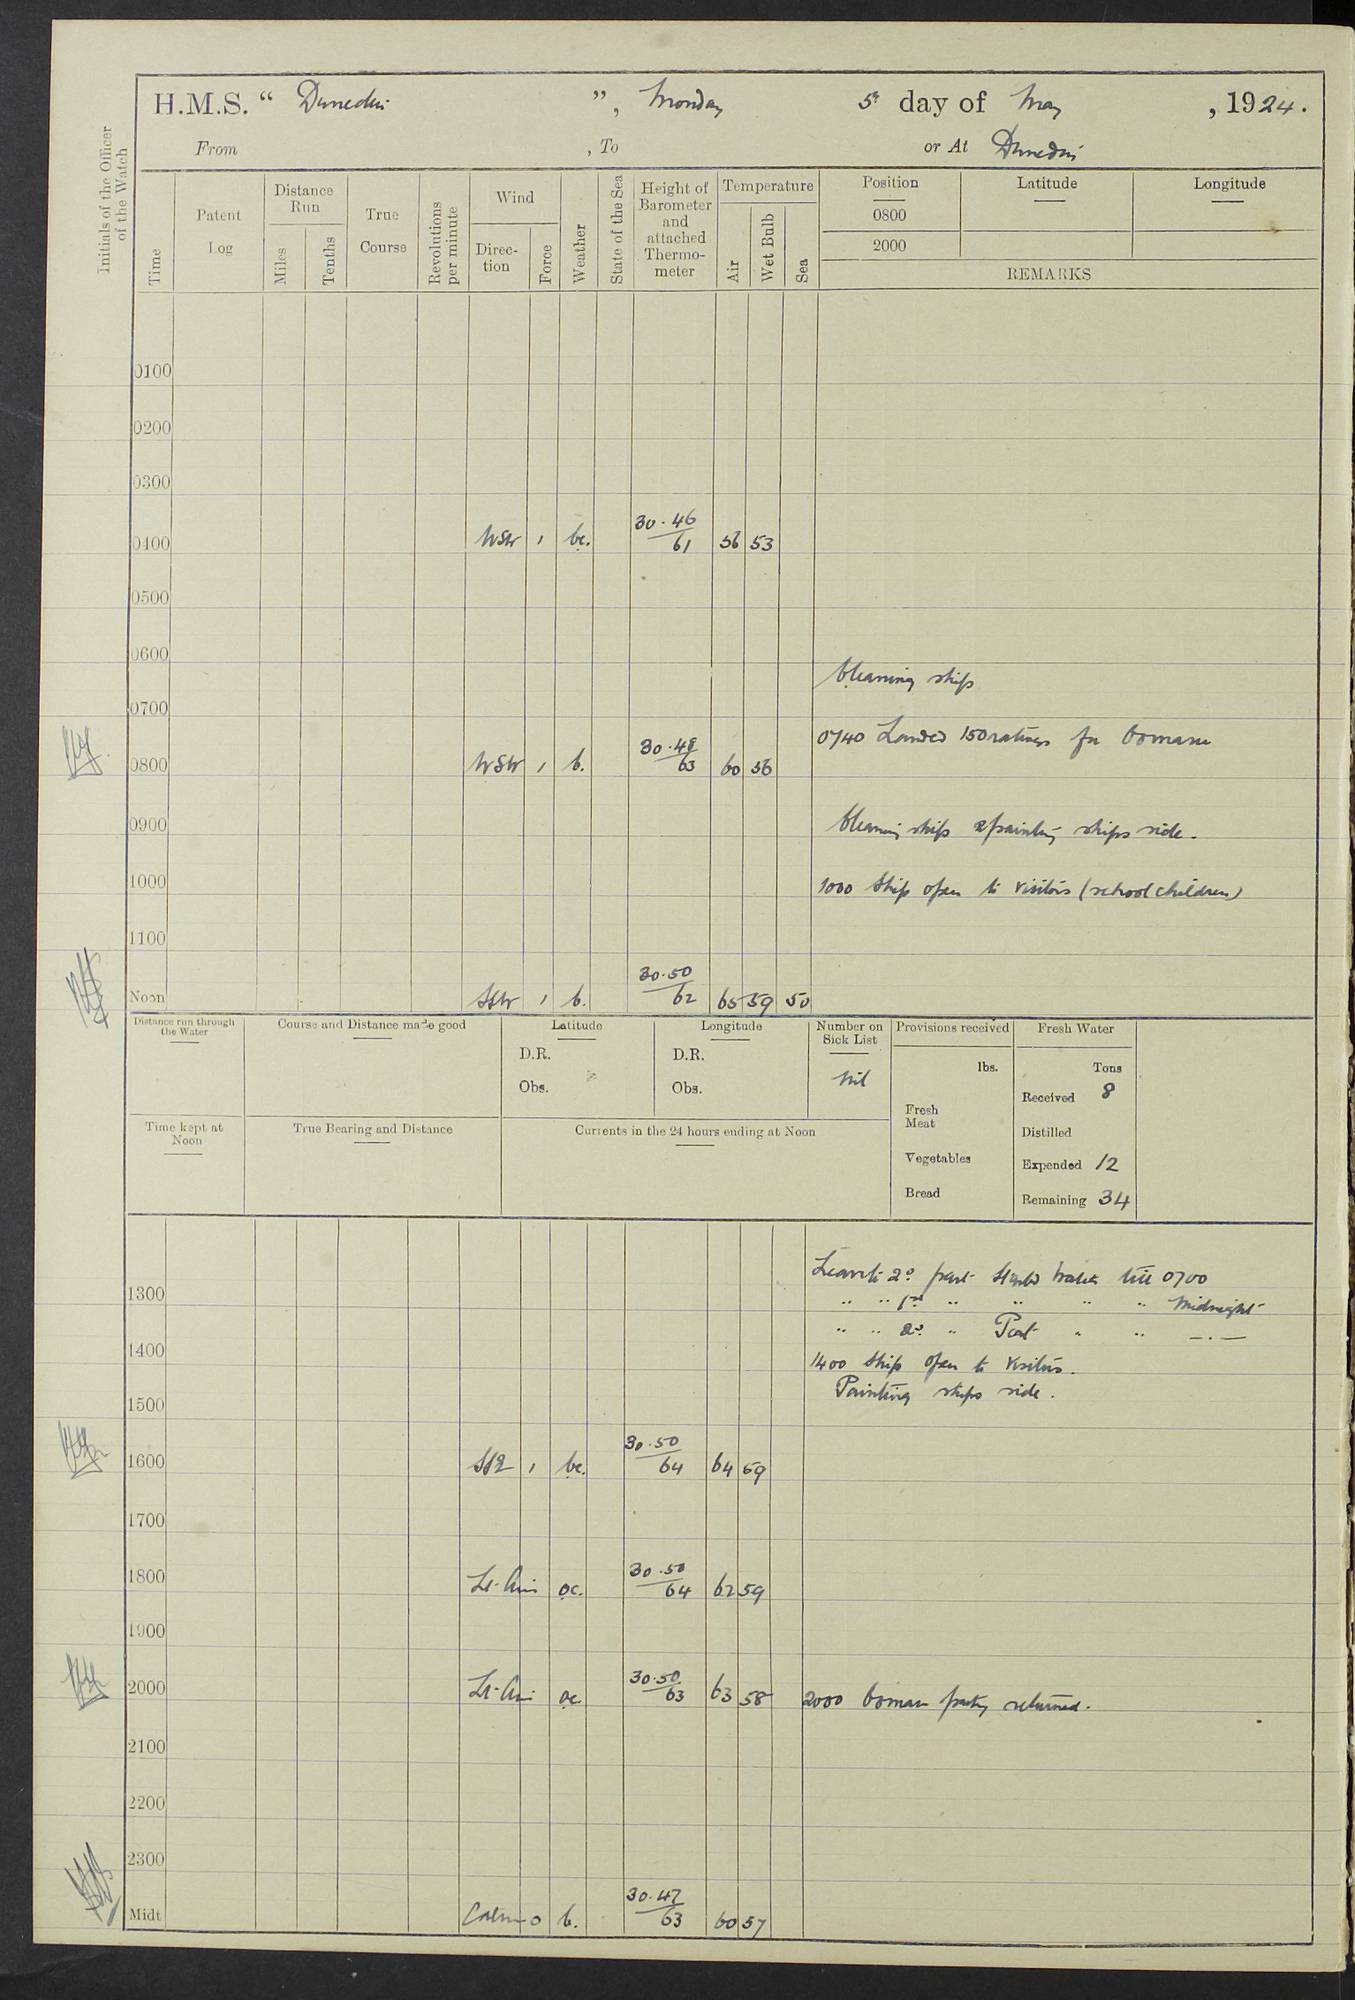 H.M.S. " Dunedin ", Monday 5th day of May, 1924.
From , To or At Dunedin
Initials of the Officer of the Watch
Time
Patent Log
Distance Run
Miles
Tenths
True Course
Revolutions per minute
Wind
Direction
Force
Weather
State of the Sea
Height of Barometer and attached Thermometer
Temperature
Air
Wet Bulb
Sea
Position
Latitude
Longitude
0800
2000
REMARKS
0100
0200
0300
0400 WSW 1 bc. 30.46 61 56 53
0500
0600
Cleaning ship
0700
0740 Landed 150 ratings for Oamaru
0800 WSW 1 b. 30.48 63 60 56
0900 Cleaning ship & painting ships side.
1000 1000 Ship open to visitors (school children)
1100
Noon SSW 1 b. 30.50 62 65 59 50
Distance run through the Water
Course and Distance made good
Latitude
D.R.
Obs.
Longitude
D.R.
Obs.
Number on Sick List
Nil
Provisions received
lbs.
Fresh Meat
Vegetables
Bread
Fresh Water
Tons
Received 8
Distilled
Expended 12
Remaining 34
Time kept at Noon
True Bearing and Distance
Currents in the 24 hours ending at Noon
Leave to 2nd part Starbd Watch till 0700
1300 " " 1st " " " " Midnight
" " 2nd " Port " " — . —
1400 1400 Ship open to visitors.
Painting ships side.
1500
1600 SSE 1 bc. 30.50 64 64 59
1700
1800 Lt. Airs oc. 30.50 64 62 59
1900
2000 Lt. Airs oc 30.50 63 63 58 2000 Oamaru party returned.
2100
2200
2300
Midt Calm 0 b. 30.47 63 60 57